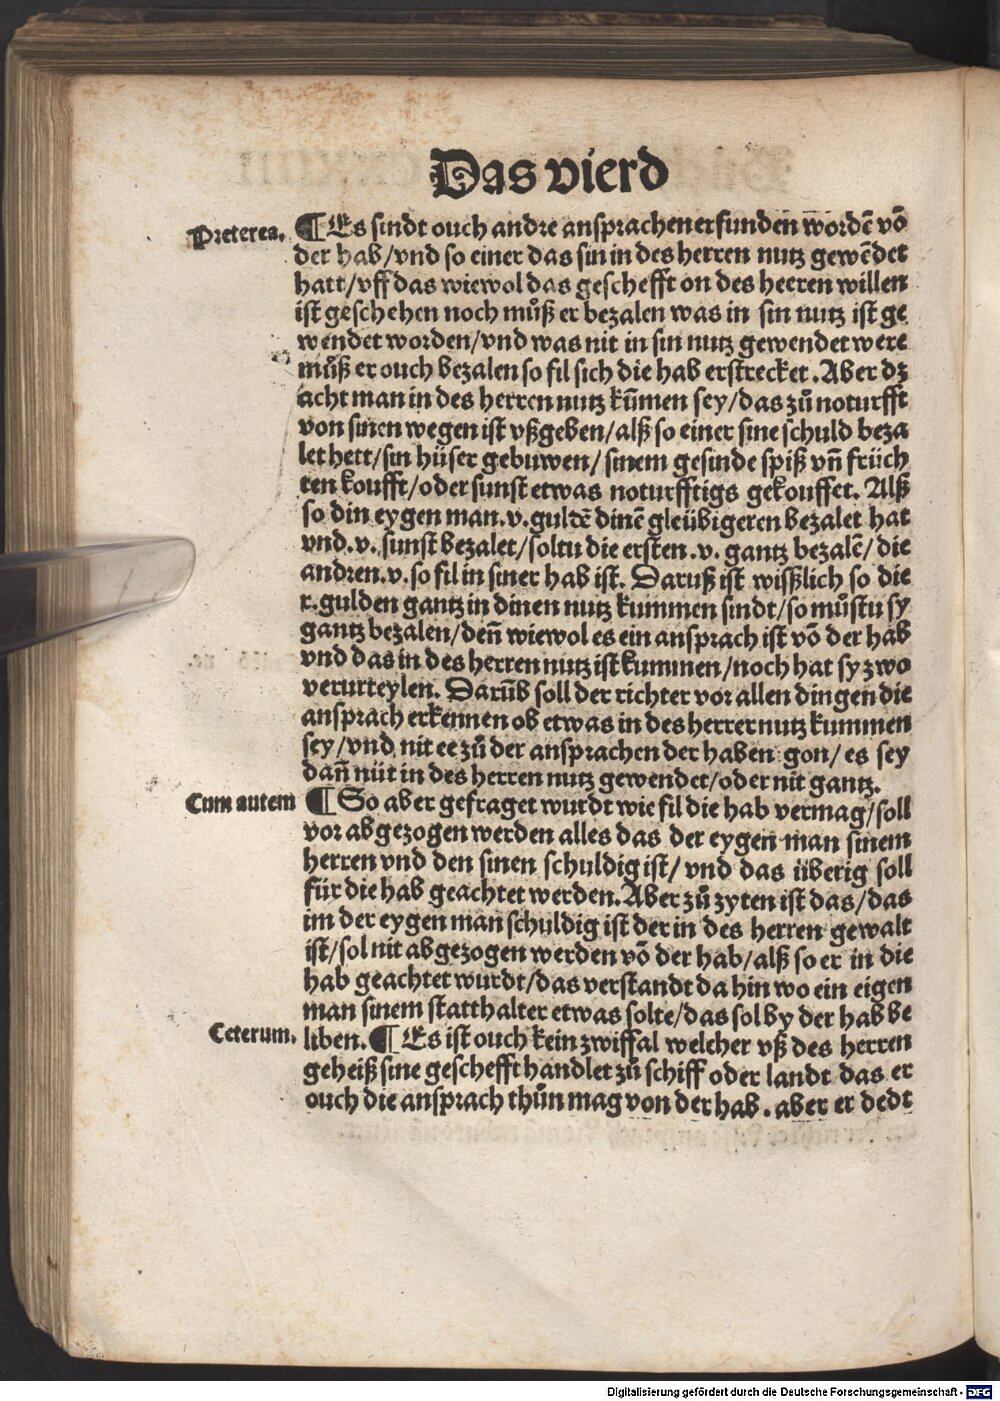 Das vierd
Preterea. ¶ Es sindt ouch andre ansprachen erfunden wordē vō
der hab/vnd so einer das sin in des herren nutz gewēdet
hatt/vff das wiewol das geschefft on des heeren willen
ist geschehen noch můß er bezalen was in sin nutz ist ge
wendet worden/vnd was nit in sin nutz gewendet were
můß er ouch bezalen so fil sich die hab erstrecket. Aber dz
acht man in des herren nutz kūmen sey/das zů noturfft
von sinen wegen ist vßgeben/alß so einer sine schuld beza
let hett/sin hüser gebuwen/sinem gesinde spiß vn̄ früch
ten koufft/oder sunst etwas noturfftigs gekouffet. Alß
so din eygen man .v. guldē dinē gleübigeren bezalet hat
vnd .v. sunst bezalet/soltu die ersten .v. gantz bezalē/die
andren .v. so fil in siner hab ist. Daruß ist wißlich so die
x. gulden gantz in dinen nutz kummen sindt/so můstu sy
gantz bezalen/den̄ wiewol es ein ansprach ist vō der hab
vnd das in des herren nutz ist kummen/noch hat sy zwo
verurteylen. Darūb soll der richter vor allen dingen die
ansprach erkennen ob etwas in des herrer nutz kummen
sey/vnd nit ee zů der ansprachen der haben gon/es sey
dan̄ nüt in des herren nutz gewendet/oder nit gantz.
Cum autem ¶ So aber gefraget wurdt wie fil die hab vermag/soll
vor abgezogen werden alles das der eygen man sinem
herren vnd den sinen schuldig ist/vnd das überig soll
für die hab geachtet werden. Aber zů zyten ist das/das
im der eygen man schuldig ist der in des herren gewalt
ist/sol nit abgezogen werden vō der hab/alß so er in die
hab geachtet wurdt/das verstandt da hin wo ein eigen
man sinem statthalter etwas solte/das sol by der hab be
Ceterum. liben. ¶ Es ist ouch kein zwiffal welcher vß des herren
geheiß sine geschefft handlet zů schiff oder landt das er
ouch die ansprach thůn mag von der hab. aber er dedt
Digitalisierung gefördert durch die Deutsche Forschungsgemeinschaft - DFG